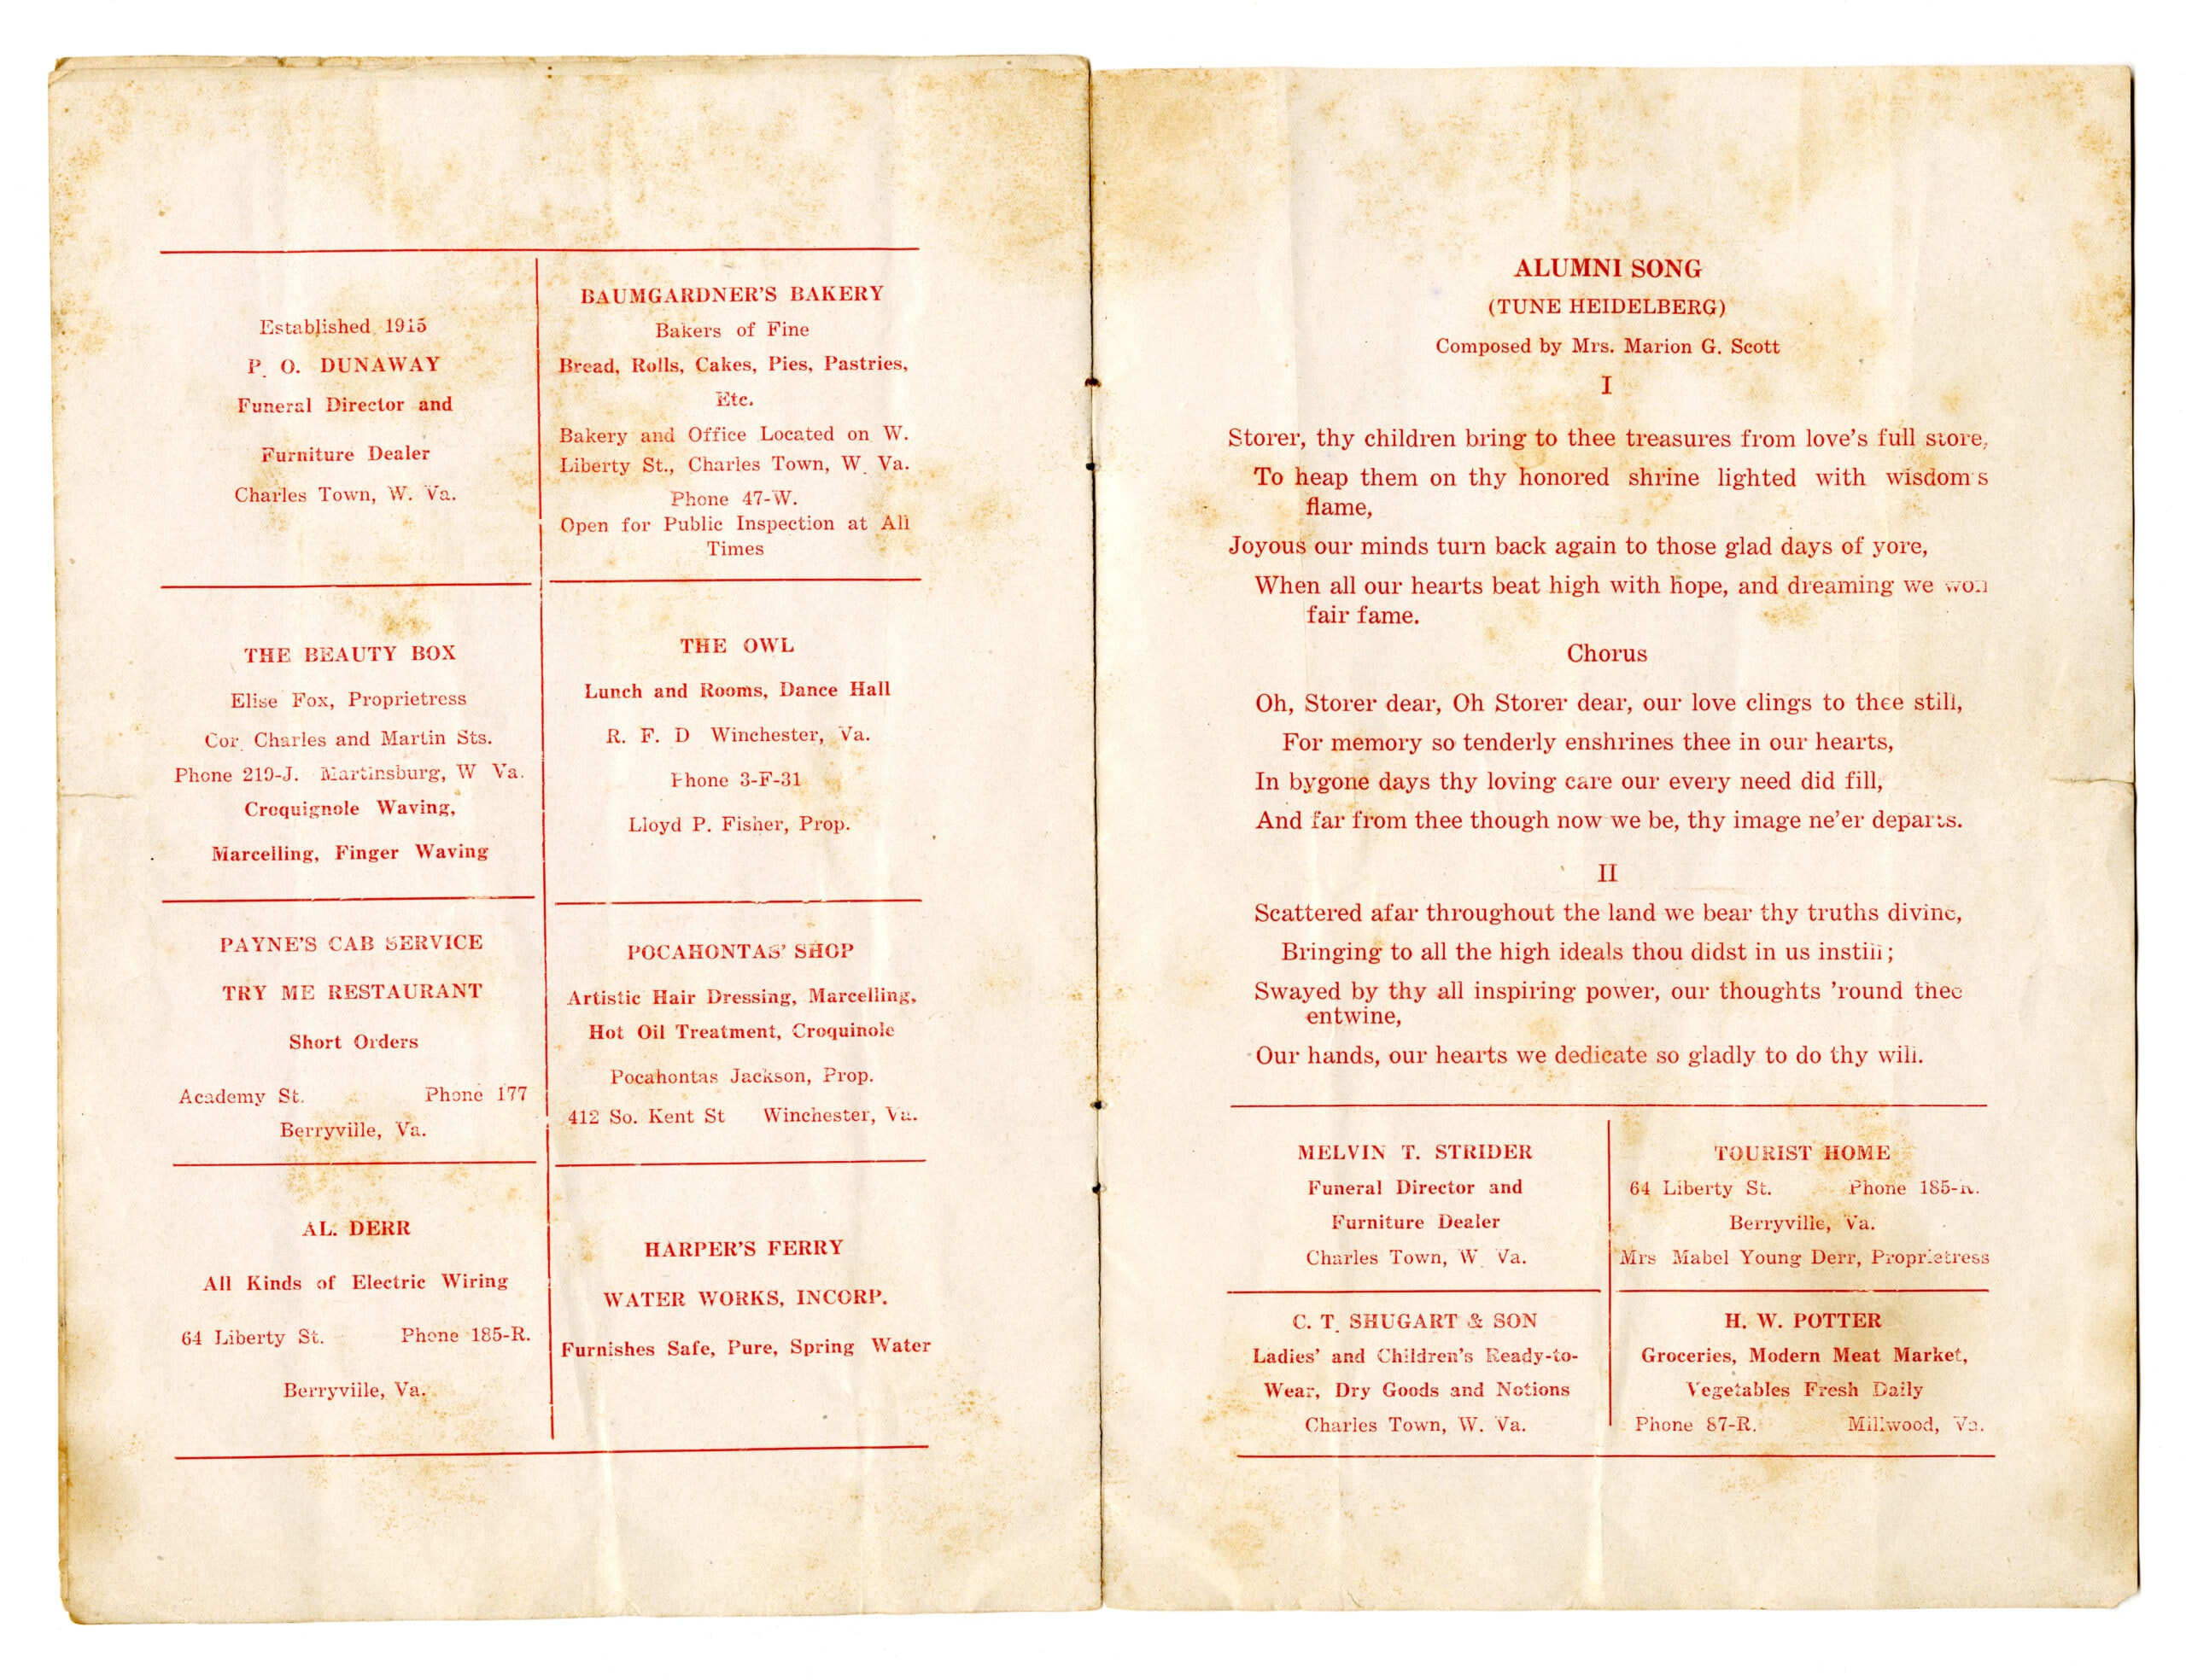 Established 1915
P. O. DUNAWAY
Funeral Director and
Furniture Dealer
Charles Town, W. Va.
BAUMGARDNER'S BAKERY
Bakers of Fine
Bread, Rolls, Cakes, Pies, Pastries,
Etc.
Bakery and Office Located on W.
Liberty St., Charles Town, W. Va.
Phone 47-W.
Open for Public Inspection at All
Times
THE BEAUTY BOX
Elise Fox, Proprietress
Cor. Charles and Martin Sts.
Phone 219-J. Martinsburg, W Va.
Croquignole Waving,
Marcelling, Finger Waving
THE OWL
Lunch and Rooms, Dance Hall
R. F. D Winchester, Va.
Phone 3-F-31
Lloyd P. Fisher, Prop.
PAYNE'S CAB SERVICE
TRY ME RESTAURANT
Short Orders
Academy St. Phone 177
Berryville, Va.
POCAHONTAS' SHOP
Artistic Hair Dressing, Marcelling,
Hot Oil Treatment, Croquinole
Pocahontas Jackson, Prop.
412 So. Kent St Winchester, Va.
AL. DERR
All Kinds of Electric Wiring
64 Liberty St. Phone 185-R.
Berryville, Va.
HARPER'S FERRY
WATER WORKS, INCORP.
Furnishes Safe, Pure, Spring Water
ALUMNI SONG
(TUNE HEIDELBERG)
Composed by Mrs. Marion G. Scott
I
Storer, thy children bring to thee treasures from love's full store,
To heap them on thy honored shrine lighted with wisdom's
flame,
Joyous our minds turn back again to those glad days of yore,
When all our hearts beat high with hope, and dreaming we won
fair fame.
Chorus
Oh, Storer dear, Oh Storer dear, our love clings to thee still,
For memory so tenderly enshrines thee in our hearts,
In bygone days thy loving care our every need did fill,
And far from thee though now we be, thy image ne'er departs.
II
Scattered afar throughout the land we bear thy truths divine,
Bringing to all the high ideals thou didst in us instill;
Swayed by thy all inspiring power, our thoughts 'round thee
entwine,
Our hands, our hearts we dedicate so gladly to do thy will.
MELVIN T. STRIDER
Funeral Director and
Furniture Dealer
Charles Town, W. Va.
TOURIST HOME
64 Liberty St. Phone 185-R.
Berryville, Va.
Mrs Mabel Young Derr, Proprietress
C. T. SHUGART & SON
Ladies' and Children's Ready-to-
Wear, Dry Goods and Notions
Charles Town, W. Va.
H. W. POTTER
Groceries, Modern Meat Market,
Vegetables Fresh Daily
Phone 87-R. Millwood, Va.